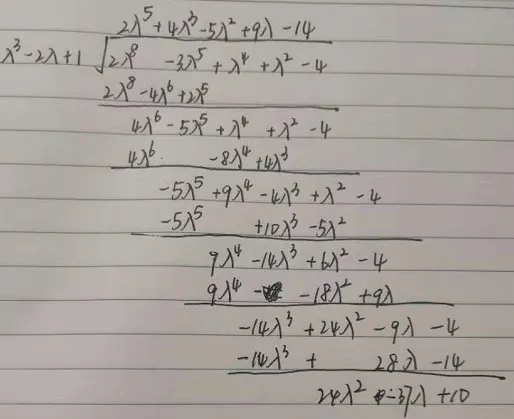 2λ⁵+4λ³-5λ²+9λ-14
λ³-2λ+1 √2λ⁸ -3λ⁵+λ⁴+λ²-4
2λ⁸-4λ⁶+2λ⁵
4λ⁶-5λ⁵+λ⁴ +λ²-4
4λ⁶. -8λ⁴+4λ³
-5λ⁵+9λ⁴-4λ³+λ²-4
-5λ⁵ +10λ³-5λ²
9λ⁴-14λ³+6λ²-4
9λ⁴- -18λ²+9λ
-14λ³+24λ²-9λ-4
-14λ³+ 28λ-14
24λ² -37λ+10